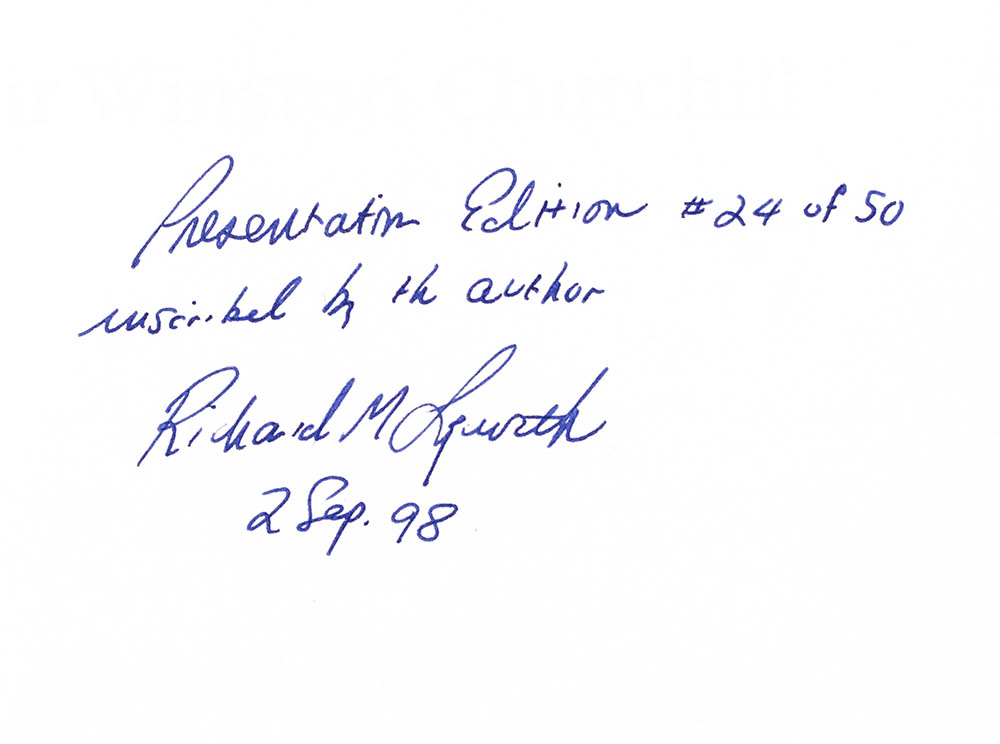 Presentation Edition #24 of 50
inscribed by the author
Richard M Langworth
2 Sep. 98